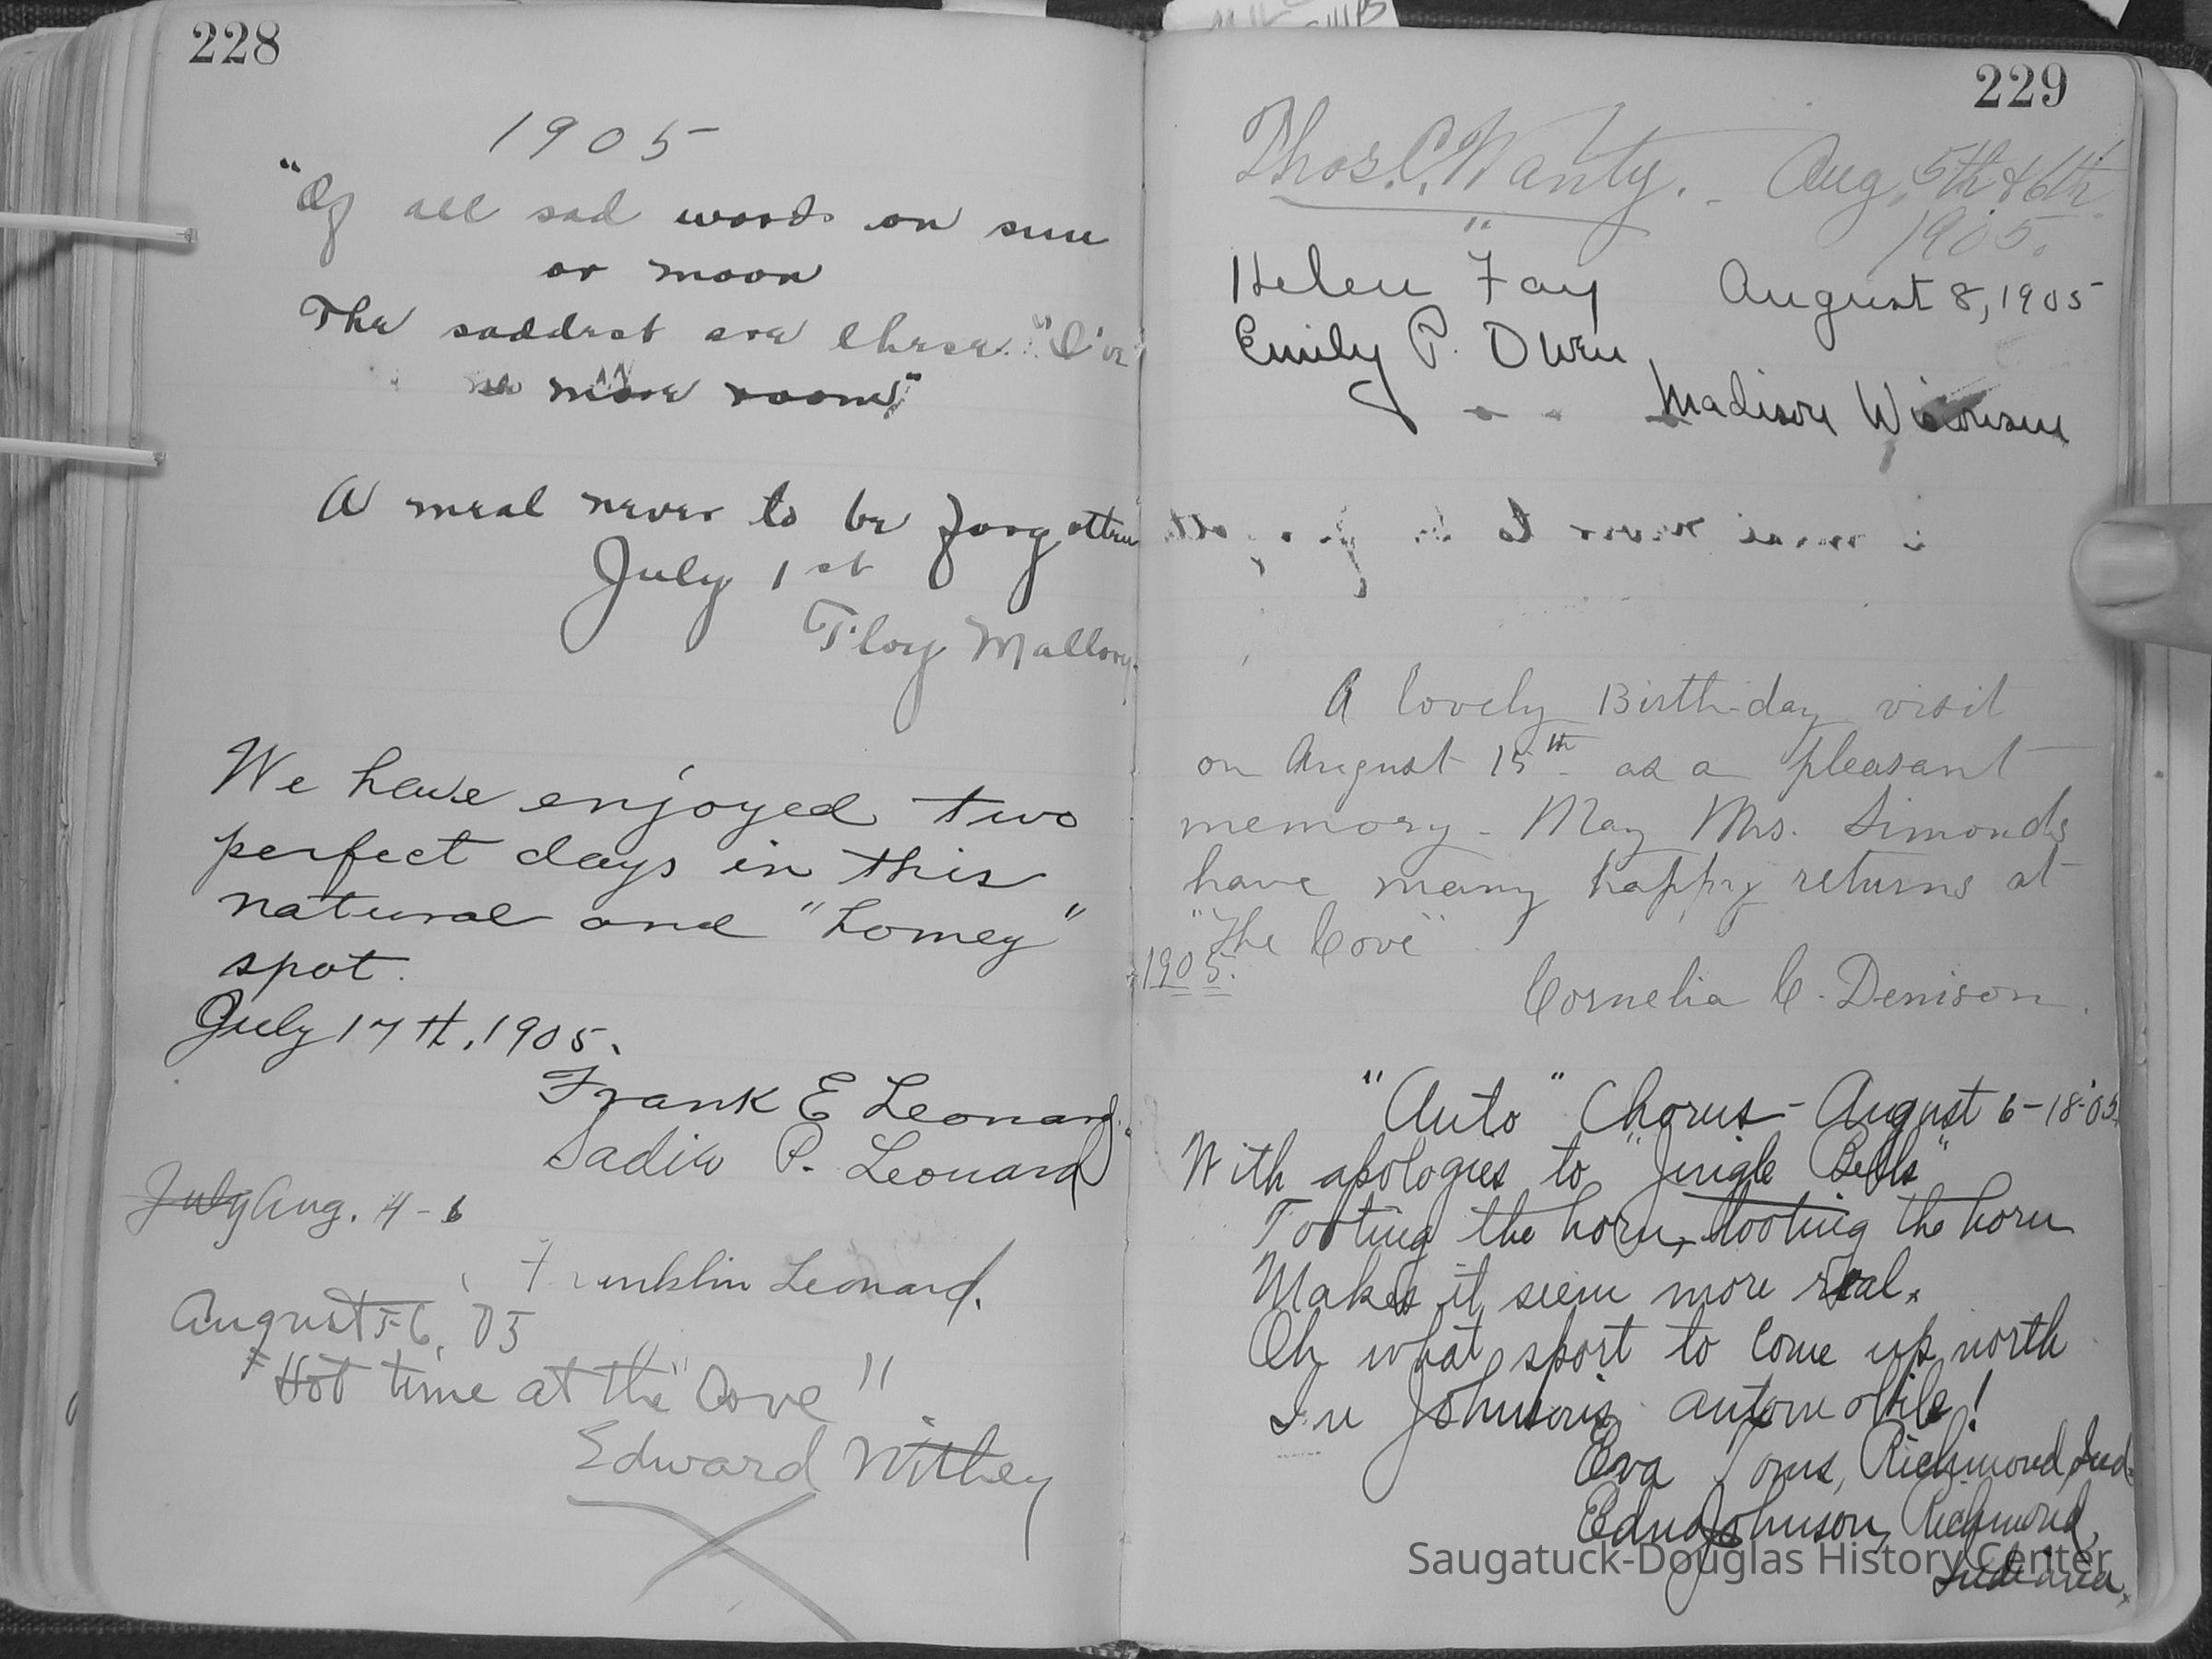 228
1905
"Of all sad words on sun
or moon
The saddest are these. "I've
no more room"
A meal never to be forgotten
July 1st
Floy Mallory.
We have enjoyed two
perfect days in this
natural and "homey"
spot.
July 17th, 1905.
Frank E Leonard.
Sadie P. Leonard
July Aug. 4-6
Franklin Leonard.
August 5-6, 05
"Hot time at the "Cove"
Edward Withey
229
Thos. C. Wanty. - Aug. 5th & 6th.
1905.
Helen Fay August 8, 1905
Emily P. Owen
" " Madison Wisconsin
A lovely Birth-day visit
on August 15th as a pleasant
memory - May Mrs. Simonds
have many happy returns at
"The Cove"
1905.
Cornelia C. Denison.
"Auto" Chorus - August 6-18-'05.
With apologies to "Jingle Bells"
Tooting the horn, tooting the horn
Makes it seem more real.
Oh what sport to come up north
In Johnson's automobile!
Eva Toms, Richmond, Ind.
Edna Johnson, Richmond,
Indiana.
Saugatuck-Douglas History Center